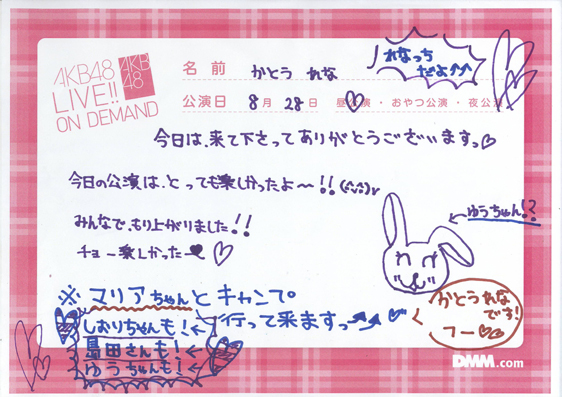 AKB48
LIVE!!
ON DEMAND
AKB
48
名前 かとう れな
れなっち
だよ↑↑
公演日 8月 28日 昼公演・おやつ公演・夜公演
今日は、来て下さってありがとうございますっ♡
今日の公演は、とっても楽しかったよ〜!!(^^)v
みんなで、もり上がりました!!
チョー楽しかったー♥♡
←ゆうちゃん!?
※マリアちゃんとキャンプ。
行って来ますっ
しおりちゃんも!←
島田さんも!←
ゆうちゃんも!←
かとうれな
です!
フー♡
DMM.com